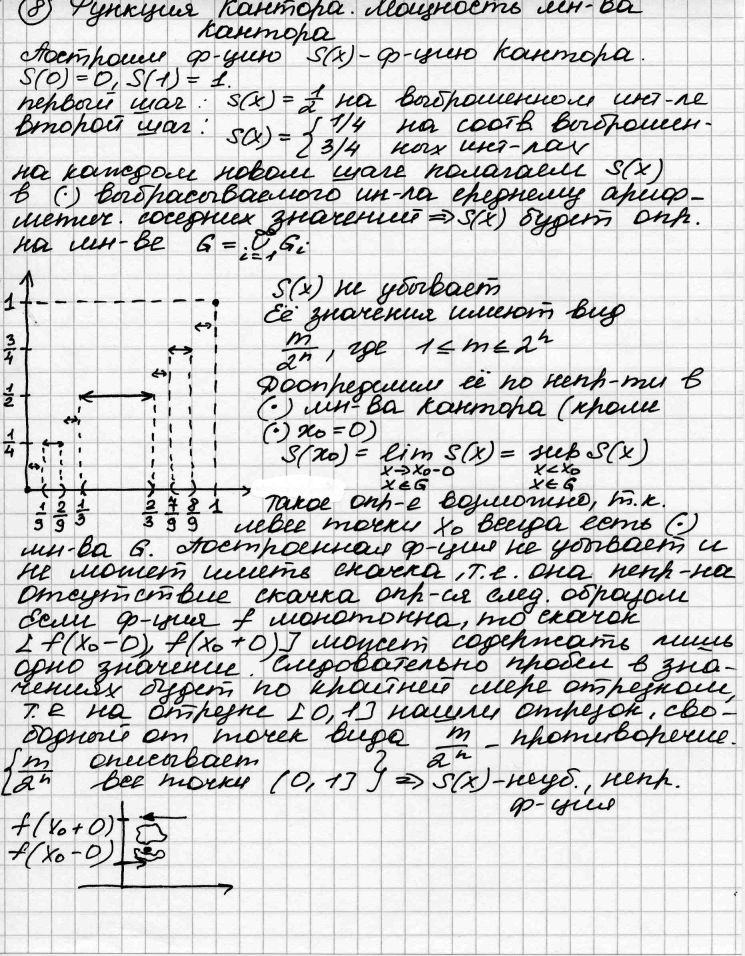 ⑧ Функция Кантора. Мощность мн-ва
Кантора
Построим ф-цию S(x)-ф-цию Кантора.
S(0)=0, S(1)=1.
первый шаг: S(x)=1/2 на выброшенном инт-ле
второй шаг: S(x)={1/4 на соотв. выброшен-
3/4 ных инт-лах
на каждом новом шаге полагаем S(x)
в (·) выбрасываемого ин-ла среднему ариф-
метич. соседних значений ⇒ S(x) будет опр.
на мн-ве G = ∞∪i=1 Gi
S(x) не убывает
Её значения имеют вид
m/2ⁿ, где 1 ≤ m ≤ 2ⁿ
Доопределим её по непр-ти в
(·) мн-ва Кантора (кроме
(·) x₀=0)
S(x₀) = lim S(x) = sup S(x)
x→x₀-0 x<x₀
x∈G x∈G
1
3/4
1/2
1/4
1/9 2/9 1/3 2/3 7/9 8/9 1
такое опр-е возможно, т.к.
левее точки x₀ всегда есть (·)
мн-ва G. Построенная ф-ция не убывает и
не может иметь скачка, т.е. она непр-на
Отсутствие скачка опр-ся след. образом
Если ф-ция f монотонна, то скачок
[f(x₀-0), f(x₀+0)] может содержать лишь
одно значение. Следовательно пробел в зна-
чениях будет по крайней мере отрезком,
т.е на отрезке [0,1] нашли отрезок, сво-
бодный от точек вида m/2ⁿ - противоречие.
{m/2ⁿ описывает
все точки (0,1]} ⇒ S(x)-неуб., непр.
ф-ция
f(x₀+0)
f(x₀-0)